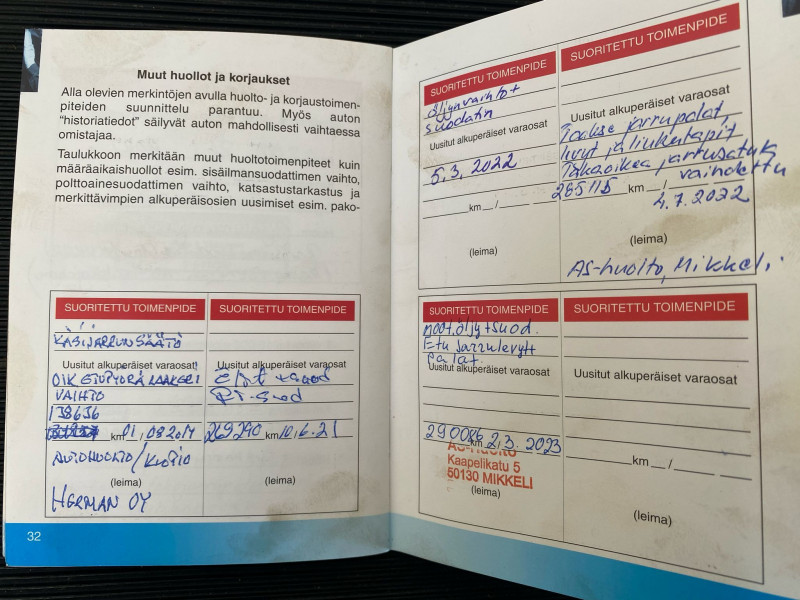 Muut huollot ja korjaukset
Alla olevien merkintöjen avulla huolto- ja korjaustoimen-
piteiden suunnittelu parantuu. Myös auton
"historiatiedot" säilyvät auton mahdollisesti vaihtaessa
omistajaa.
Taulukkoon merkitään muut huoltotoimenpiteet kuin
määräaikaishuollot esim. sisäilmansuodattimen vaihto,
polttoainesuodattimen vaihto, katsastustarkastus ja
merkittävimpien alkuperäisosien uusimiset esim. pako-
SUORITETTU TOIMENPIDE
KÄSIJARRUNSÄÄTÖ
Uusitut alkuperäiset varaosat
OIK ETUPYÖRÄ LAAKERI
VAIHTO
138636
km 01,08 2014
AUTOHUOLTO / KUOPIO
(leima)
HERMAN OY
SUORITETTU TOIMENPIDE
Uusitut alkuperäiset varaosat
269290 km 10.6.21
(leima)
32
SUORITETTU TOIMENPIDE
Öljynvaihto +
suodatin
Uusitut alkuperäiset varaosat
5.3.2022
km /
(leima)
SUORITETTU TOIMENPIDE
Uusitut alkuperäiset varaosat
Taakse jarrupalat,
levyt ja liukutapit
Takaoikea jarrusatula
vaihdettu
285115 km /
4.7.2022
(leima)
AS-huolto, Mikkeli
SUORITETTU TOIMENPIDE
moot.öljy+suod.
Etu jarrulevyt
palat.
Uusitut alkuperäiset varaosat
290086 km 2.3.2023
AS-Huolto
Kaapelikatu 5
50130 MIKKELI
(leima)
SUORITETTU TOIMENPIDE
Uusitut alkuperäiset varaosat
km /
(leima)